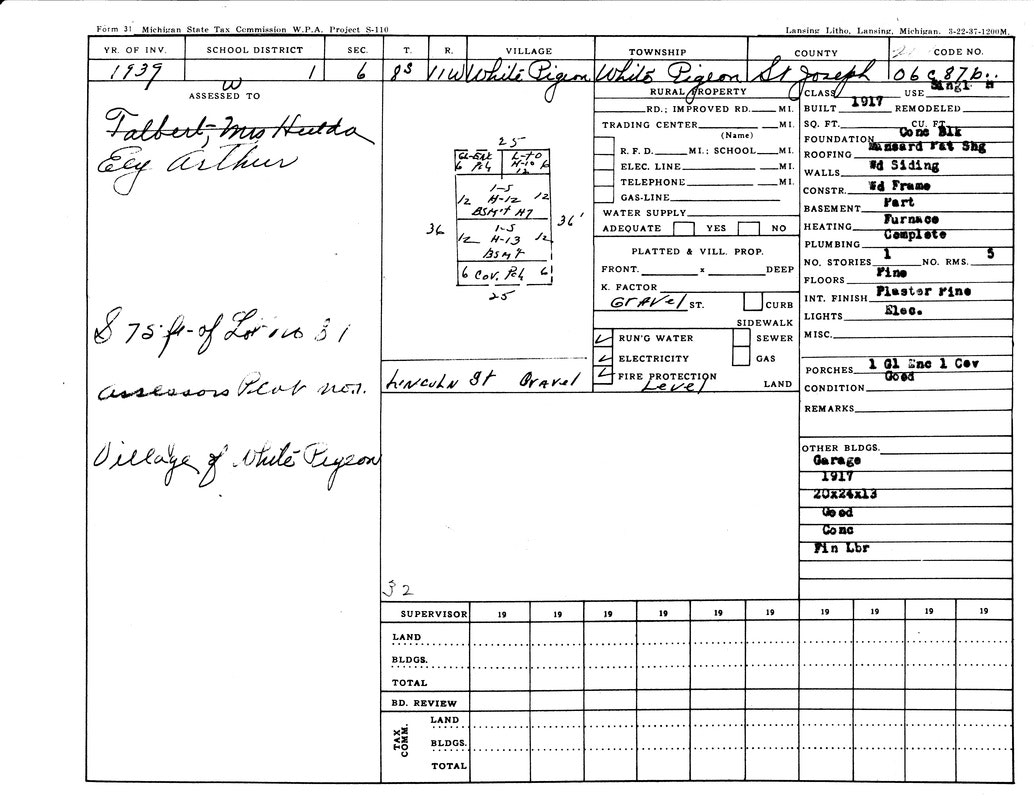 Form 31 Michigan State Tax Commission W.P.A. Project S-110
Lansing Litho, Lansing, Michigan. 3-22-37-1200M.
YR. OF INV. SCHOOL DISTRICT SEC. T. R. VILLAGE TOWNSHIP COUNTY CODE NO.
1939 1 6 8S 11W White Pigeon White Pigeon St Joseph 06 c 87b..
W
ASSESSED TO
Talbert, Mrs Hulda
Ely Arthur
S 75 ft of Lot no 31
assessors Plat no 1.
Village of White Pigeon
25
GL-ENC L-TO
6 Pch H-10 6
12
1-S
12 H-12 12
BSM'T H7
36 36'
1-S
12 H-13 12
BSM'T
6 Cov. Pch 6
25
Lincoln St Gravel
32
RURAL PROPERTY
RD.; IMPROVED RD. MI.
TRADING CENTER MI.
(Name)
R. F. D. MI.; SCHOOL MI.
ELEC. LINE MI.
TELEPHONE MI.
GAS-LINE
WATER SUPPLY
ADEQUATE YES NO
PLATTED & VILL. PROP.
FRONT. x DEEP
K. FACTOR
Gravel ST. CURB
SIDEWALK
RUN'G WATER SEWER
ELECTRICITY GAS
FIRE PROTECTION
Level LAND
CLASS USE Singl H
BUILT 1917 REMODELED
SQ. FT. CU. FT.
FOUNDATION Conc Blk
ROOFING Mansard Pat Shg
WALLS Wd Siding
CONSTR. Wd Frame
BASEMENT Part
HEATING Furnace
PLUMBING Complete
NO. STORIES 1 NO. RMS. 5
FLOORS Pine
INT. FINISH Plaster Pine
LIGHTS Elec.
MISC.
PORCHES 1 Gl Enc 1 Cov
CONDITION Good
REMARKS
OTHER BLDGS.
Garage
1917
20x24x13
Good
Conc
Fin Lbr
SUPERVISOR 19 19 19 19 19 19 19 19 19 19
LAND
BLDGS.
TOTAL
BD. REVIEW
TAX COMM.
LAND
BLDGS.
TOTAL